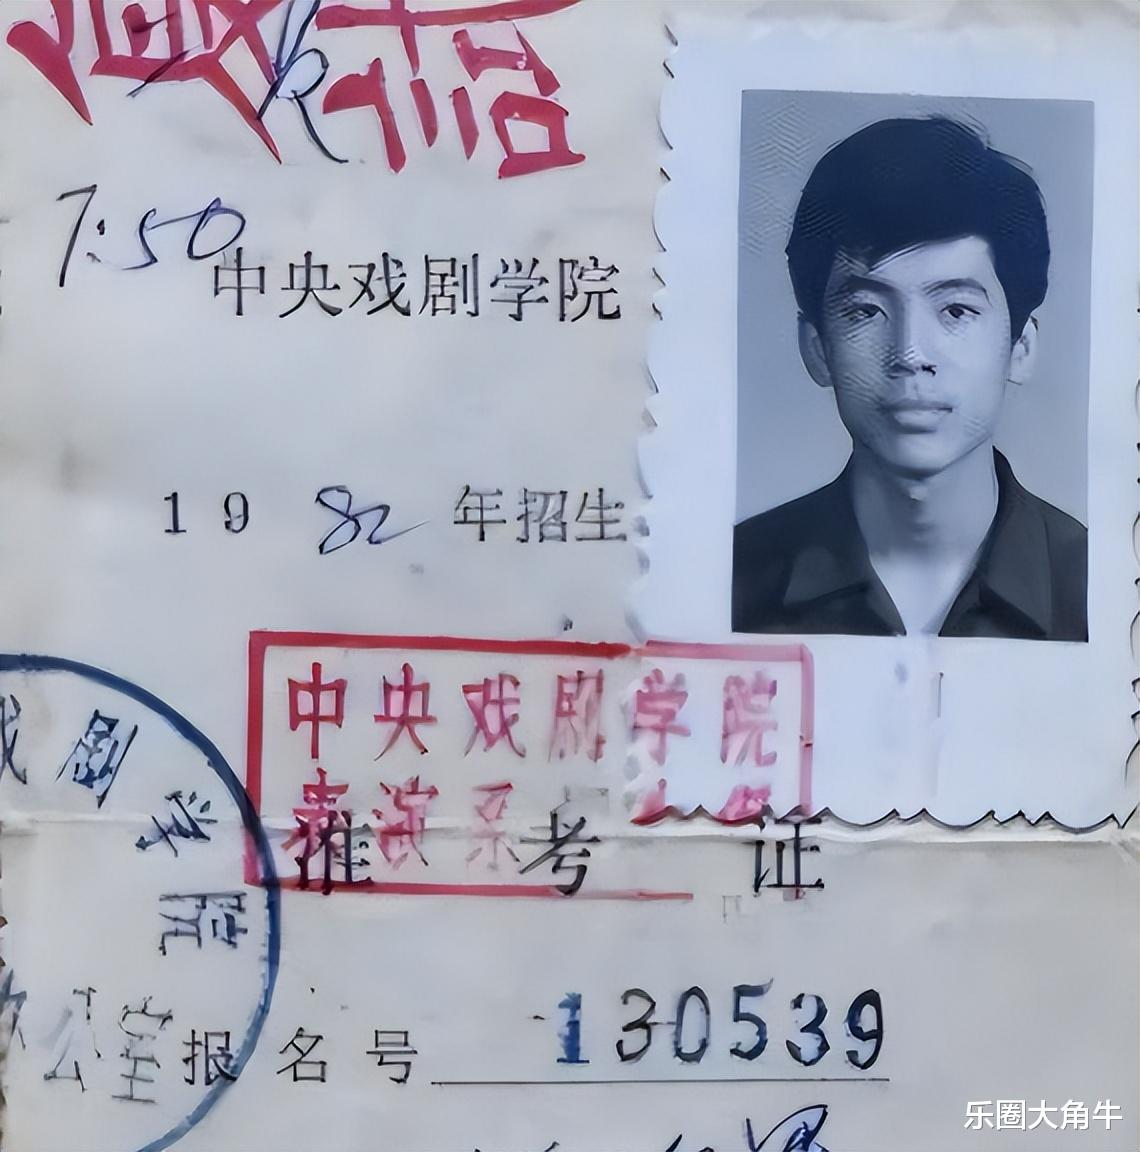 7:50
中央戏剧学院
1982年招生
中央戏剧学院
表演系
准考证
剧学院
公室
报名号 130539
乐圈大角牛